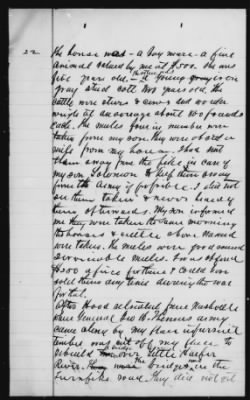 22
the house was - a Bay mare - a fine
animal valued by me at $200. She was
five years old - A young gray
gray stud colt two years old. The
cattle were steers & cows did no under
weight at an average about 400 pounds
each. The mules four in number were
taken from my son. They were about a
mile from my house. I had sent
them away from the pike in care of
my son Solomon to keep them away
from the army if possible. I did not
see them taken & never heard
them afterward. My son informed
me they were taken the same morning
the horses & cattle above named
were taken. The mules were good sound
serviceable mules. I was offered
$200 apiece for them & could have
sold them any time during the war
for that.
After Hood retreated from Nashville
when General Geo H. Thomas army
came along by my place a quantity
timber was cut off my place to
rebuild a bridge over Little Harpeth
River. the bridge was on the
turnpike road. They did not get